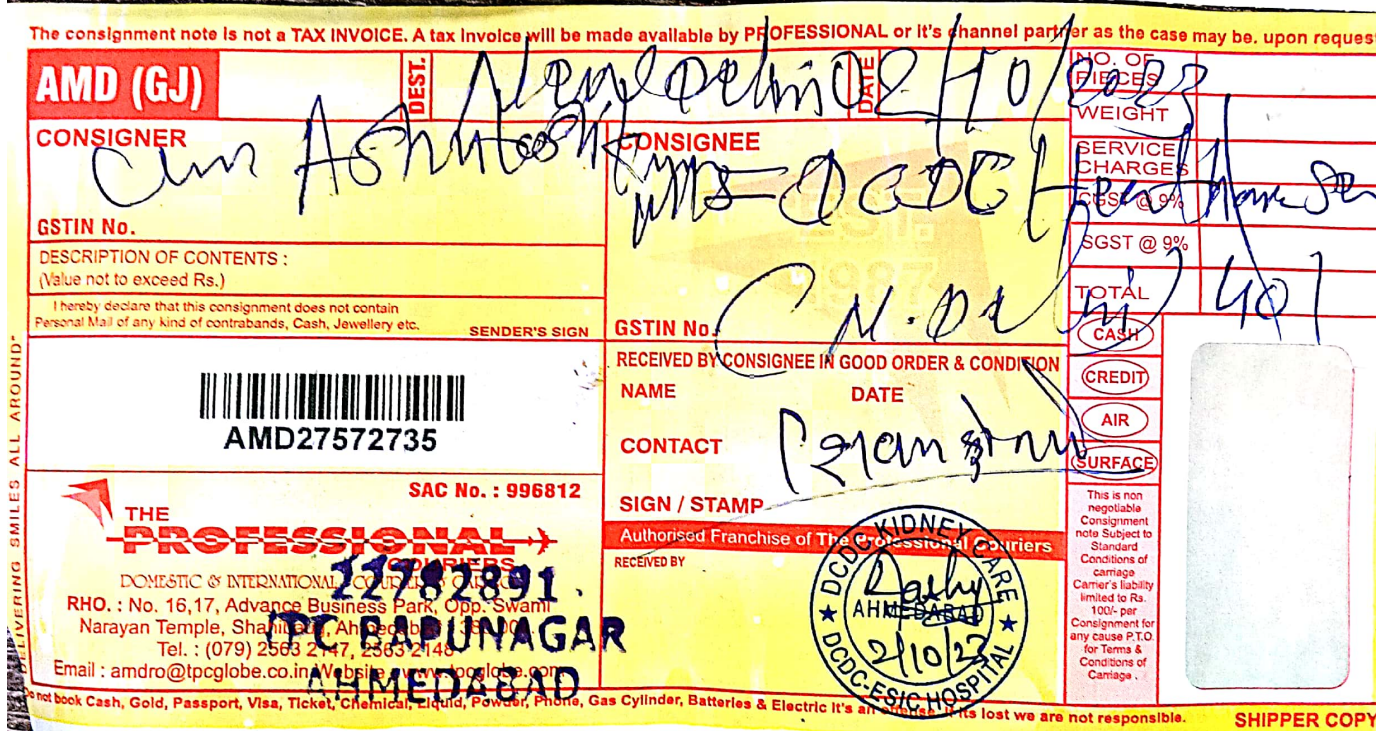 The consignment note is not a TAX INVOICE. A tax invoice will be made available by PROFESSIONAL or it's channel partner as the case may be. upon request
AMD (GJ)
DEST.
New Delhi
DATE
02/10/2023
NO. OF PIECES
WEIGHT
SERVICE CHARGES
CGST @ 9%
SGST @ 9%
TOTAL
401
CONSIGNER
Ashutosh
GSTIN No.
DESCRIPTION OF CONTENTS :
(Value not to exceed Rs.)
I hereby declare that this consignment does not contain
Personal Mail of any kind of contrabands, Cash, Jewellery etc.
SENDER'S SIGN
CONSIGNEE
DCDC
N. Delhi
EST.
1987
GSTIN No.
RECEIVED BY CONSIGNEE IN GOOD ORDER & CONDITION
NAME
DATE
CONTACT
SIGN / STAMP
Authorised Franchise of The Professional Couriers
RECEIVED BY
CASH
CREDIT
AIR
SURFACE
This is non
negotiable
Consignment
note Subject to
Standard
Conditions of
carriage
Carrier's liability
limited to Rs.
100/- per
Consignment for
any cause P.T.O.
for Terms &
Conditions of
Carriage .
AMD27572735
SAC No. : 996812
THE
PROFESSIONAL
COURIERS
DOMESTIC & INTERNATIONAL COURIER &
RHO. : No. 16,17, Advance Business Park, Opp. Swami
Narayan Temple,
Tel. : (079) 2563 2147, 2563 2148
Email : amdro@tpcglobe.co.in Website : www.tpcglobe.com
22782891
TPC BAPUNAGAR
AHMEDABAD
DCDC KIDNEY CARE
AHMEDABAD
2/10/23
DCDC-ESIC HOSPITAL
DELIVERING SMILES ALL AROUND"
Do not book Cash, Gold, Passport, Visa, Ticket, Chemical, Liquid, Powder, Phone, Gas Cylinder, Batteries & Electric It's an offense. If its lost we are not responsible.
SHIPPER COPY